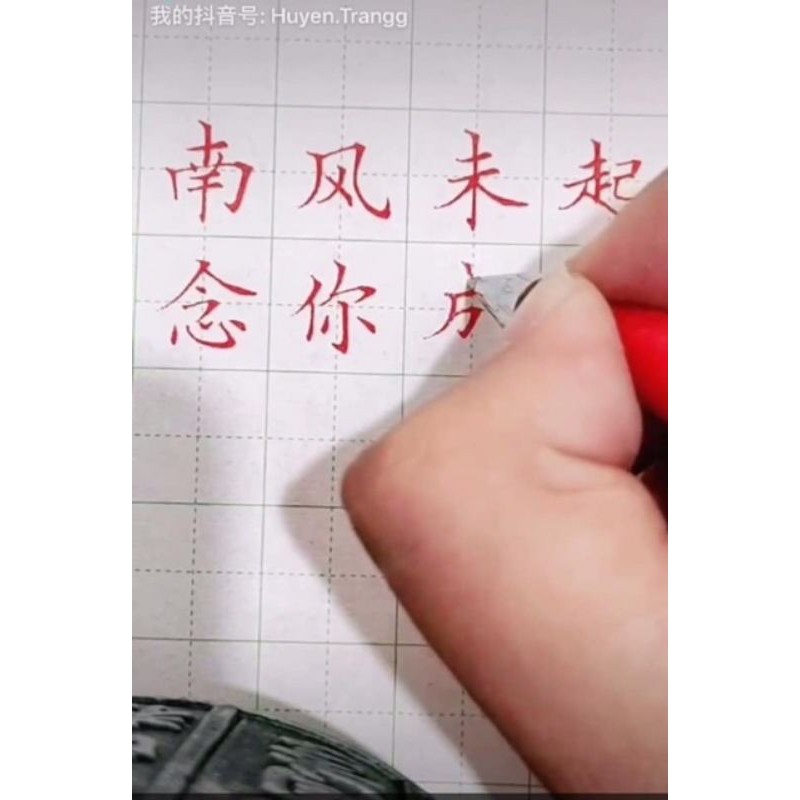 我的抖音号: Huyen.Trangg
南风未起
念你